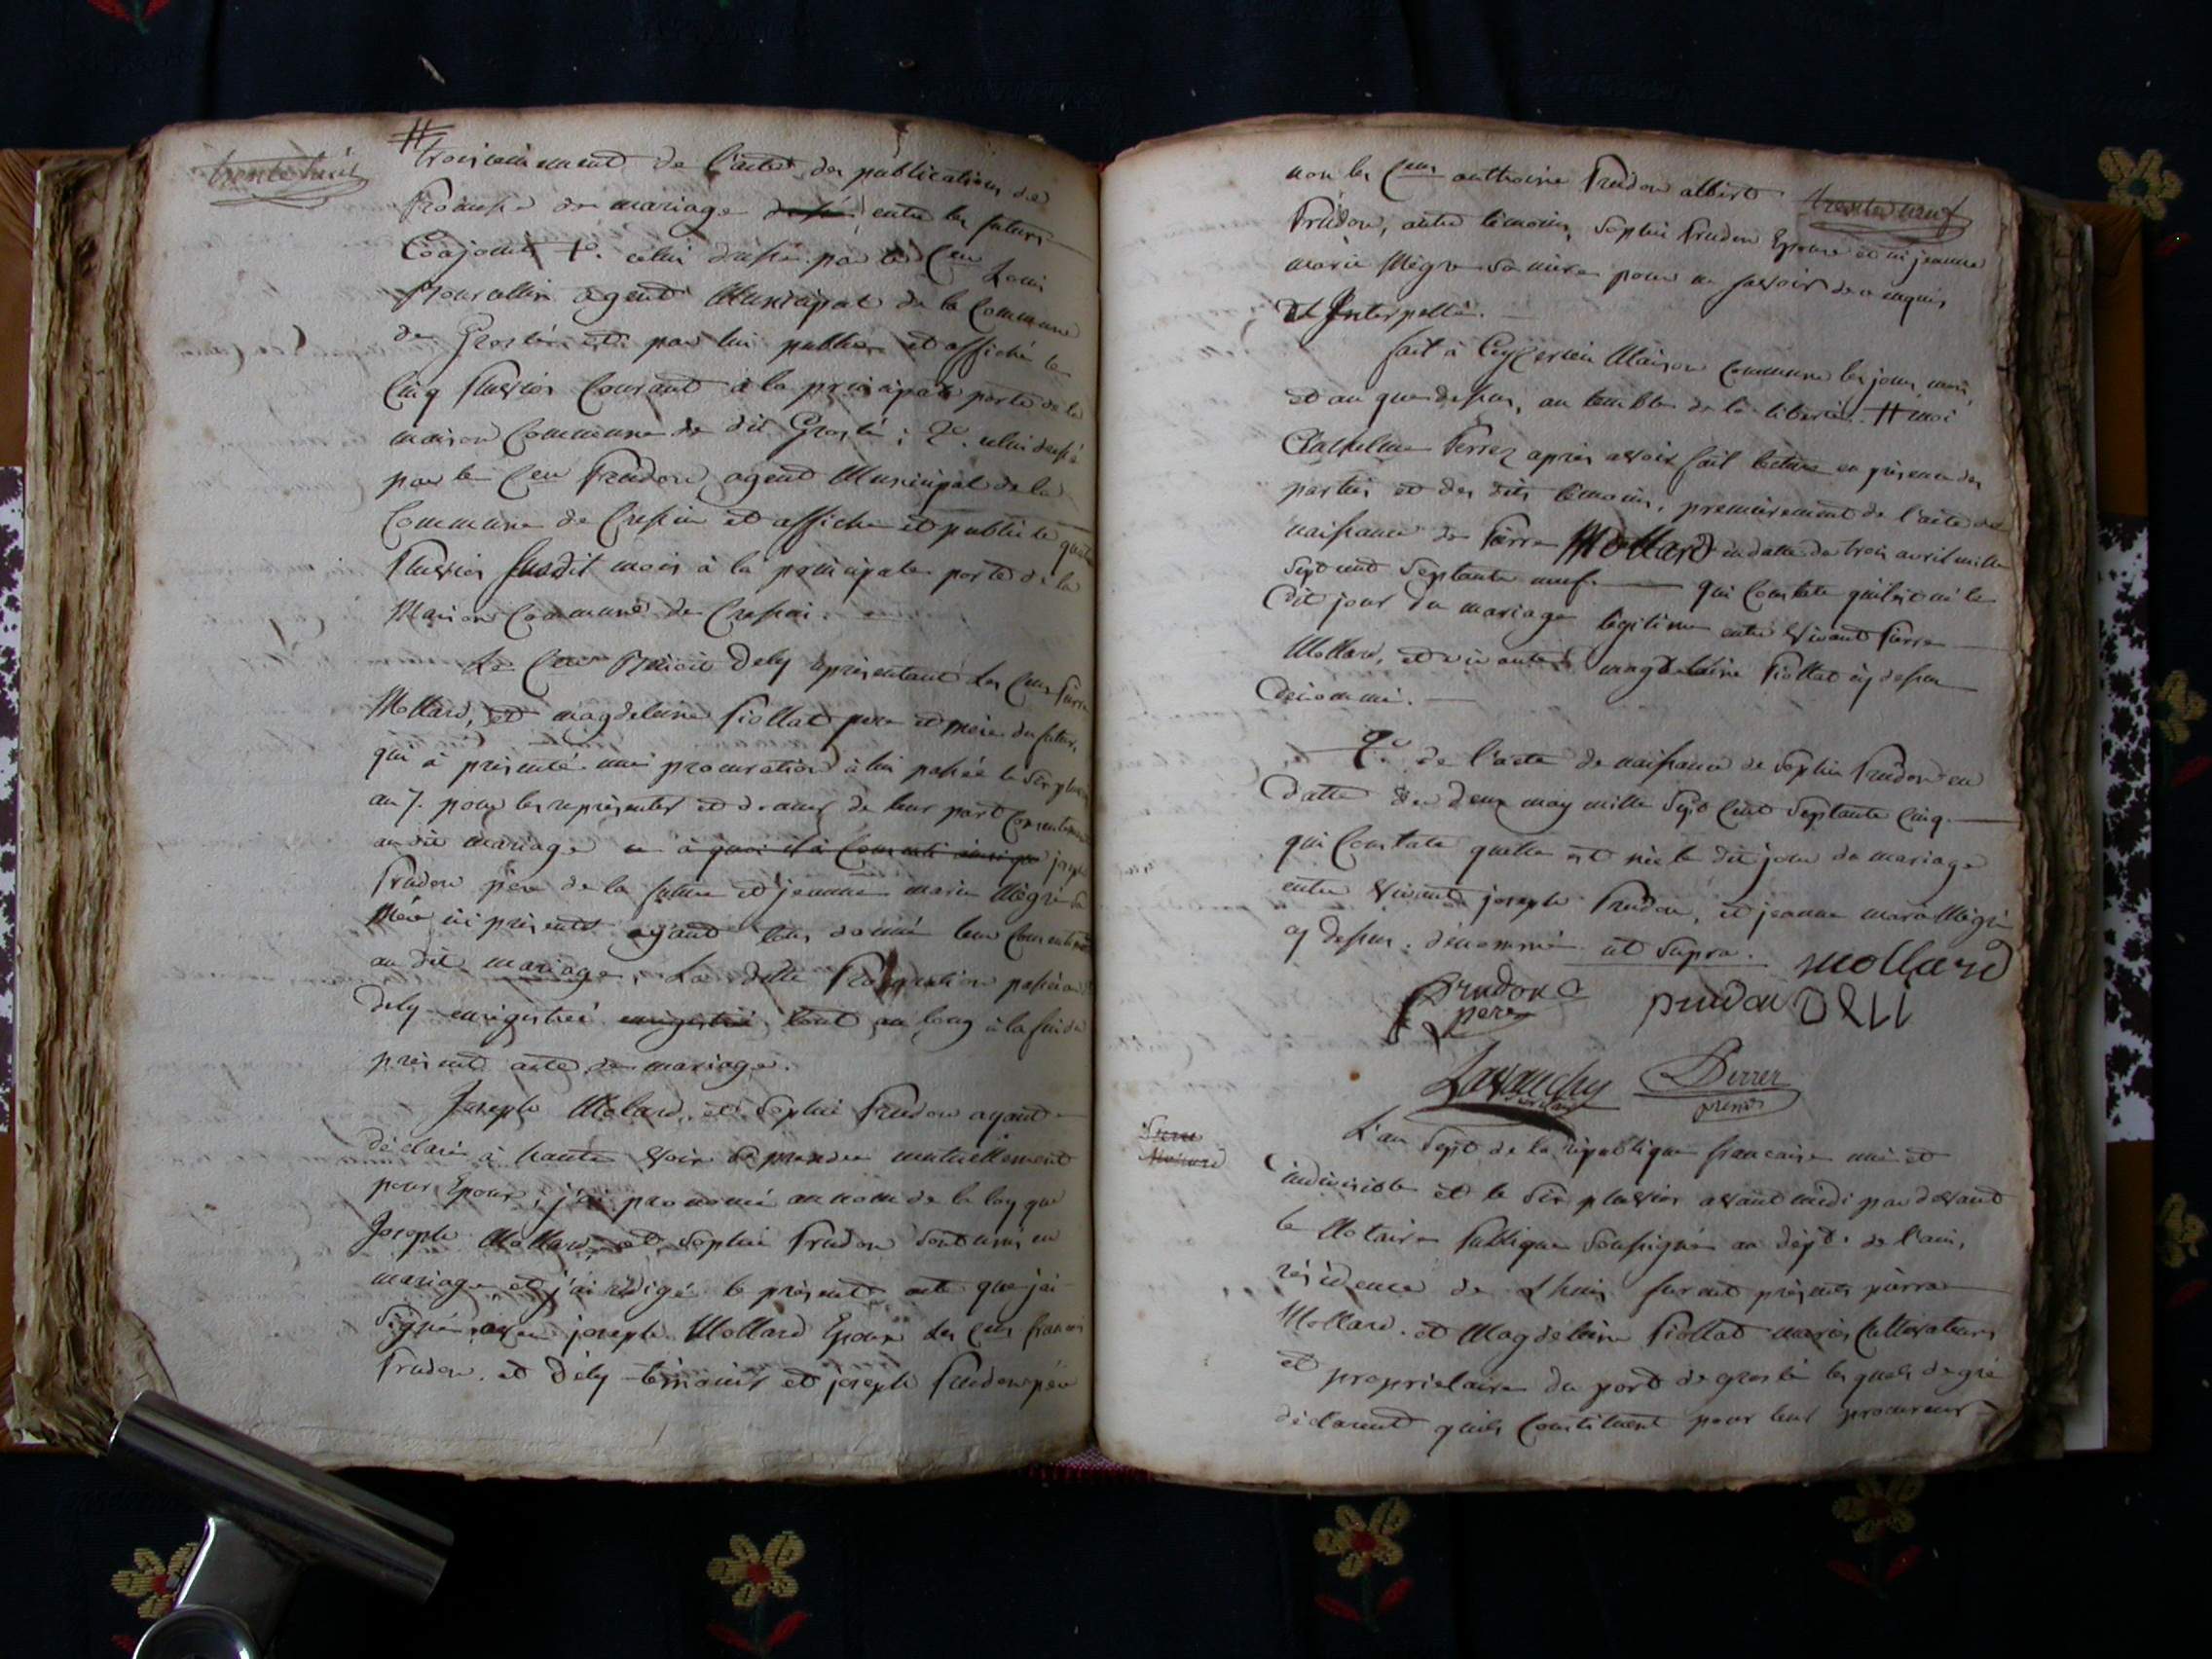 trente huit
# troisiemement de l'acte des publications de
Promesse de mariage dressé entre les futurs
Conjoints 1º. celui dressé par le Cen Loui
agent Municipal de la Commune
de Groslée et par lui publiée et affiché le
Cinq Pluviose Courant à la principale porte de la
maison Commune de dit Groslé ; 2º. celui dressé
par le Cen Prudon agent Municipal de la
Commune de et affiche et publié le quatre
Pluviose susdit mois à la principale porte de la
Maison Commune de
Le Cen Benoit Dely représentant les Cens Pierre
Mollard, et magdeleine Piollat pere et mere du futur,
qui à présenté une procuration à lui passée le six pluviose
an 7. pour les représenter et donner de leur part consentement
au dit mariage à quoi il à Consenti ainsi que joseph
Prudon père de la future et jeanne marie Mégre sa
Mère ici présents ayant tous donné leur Consentement
au dit mariage, La ditte Procuration passée au
Dely enregistrée enregistrée tout au long à la fin du
présent acte de mariage.
Joseph Molard, et Sophie Prudon ayant
déclaré à haute voix se prendre mutuellement
pour Epoux, j'ai prononcé au nom de la loy que
Joseph Mollard, et Sophie Prudon sont unis en
mariage, et j'ai rédigé le présent acte que j'ai
Signé avec joseph Mollard Epoux les Cens francois
Prudon, et Dely témoins et joseph Prudon père
trente neuf
non les Cens anthoine Prudon albert
Prudon, autre témoins, Sophie Prudon Epouse et ni jeanne
marie Mègre sa mère pour ne savoir de ce enquis
et Interpellé.
fait à Ceyzerieu Maison Commune les jour, mois,
et an que dessus, au temble de la liberté. # moi
Anthelme Perrez après avoir fait lecture en présence des
parties et des dits témoins, premièrement de l'acte de
naissance de Pierre Mollard en datte du trois avril mille
Sept cent Septante neuf. qui Constate qu'il est né le
dit jour du mariage légitime entre vivant Pierre
Mollard, et vivante magdelaine Piollat cy dessus
dénommé.
2º. de l'acte de naissance de Sophie Prudon en
datte du deux may mille Sept Cent Septante Cinq.
qui Constate quelle est née le dit jour de mariage
entre vivant joseph Prudon, et jeanne marie Mégre
cy dessus. dénommé ut supra. Mollard
Prudon pere prudon DELI
Lavanchy Secretaire Perrez présid
Pierre Mollard
L'an Sept de la république francaise une et
indivisible et le Six pluviose avant midi par devant
le Notaire Publique Soussigné au dépt. de l'ain,
résidence de Lhuis furent présents pierre
Mollard. et Magdeleine Piollat mariés Cultivateurs
et propriétaires du port de groslée les quels de gré
déclarent quils Constituent pour leur procureur